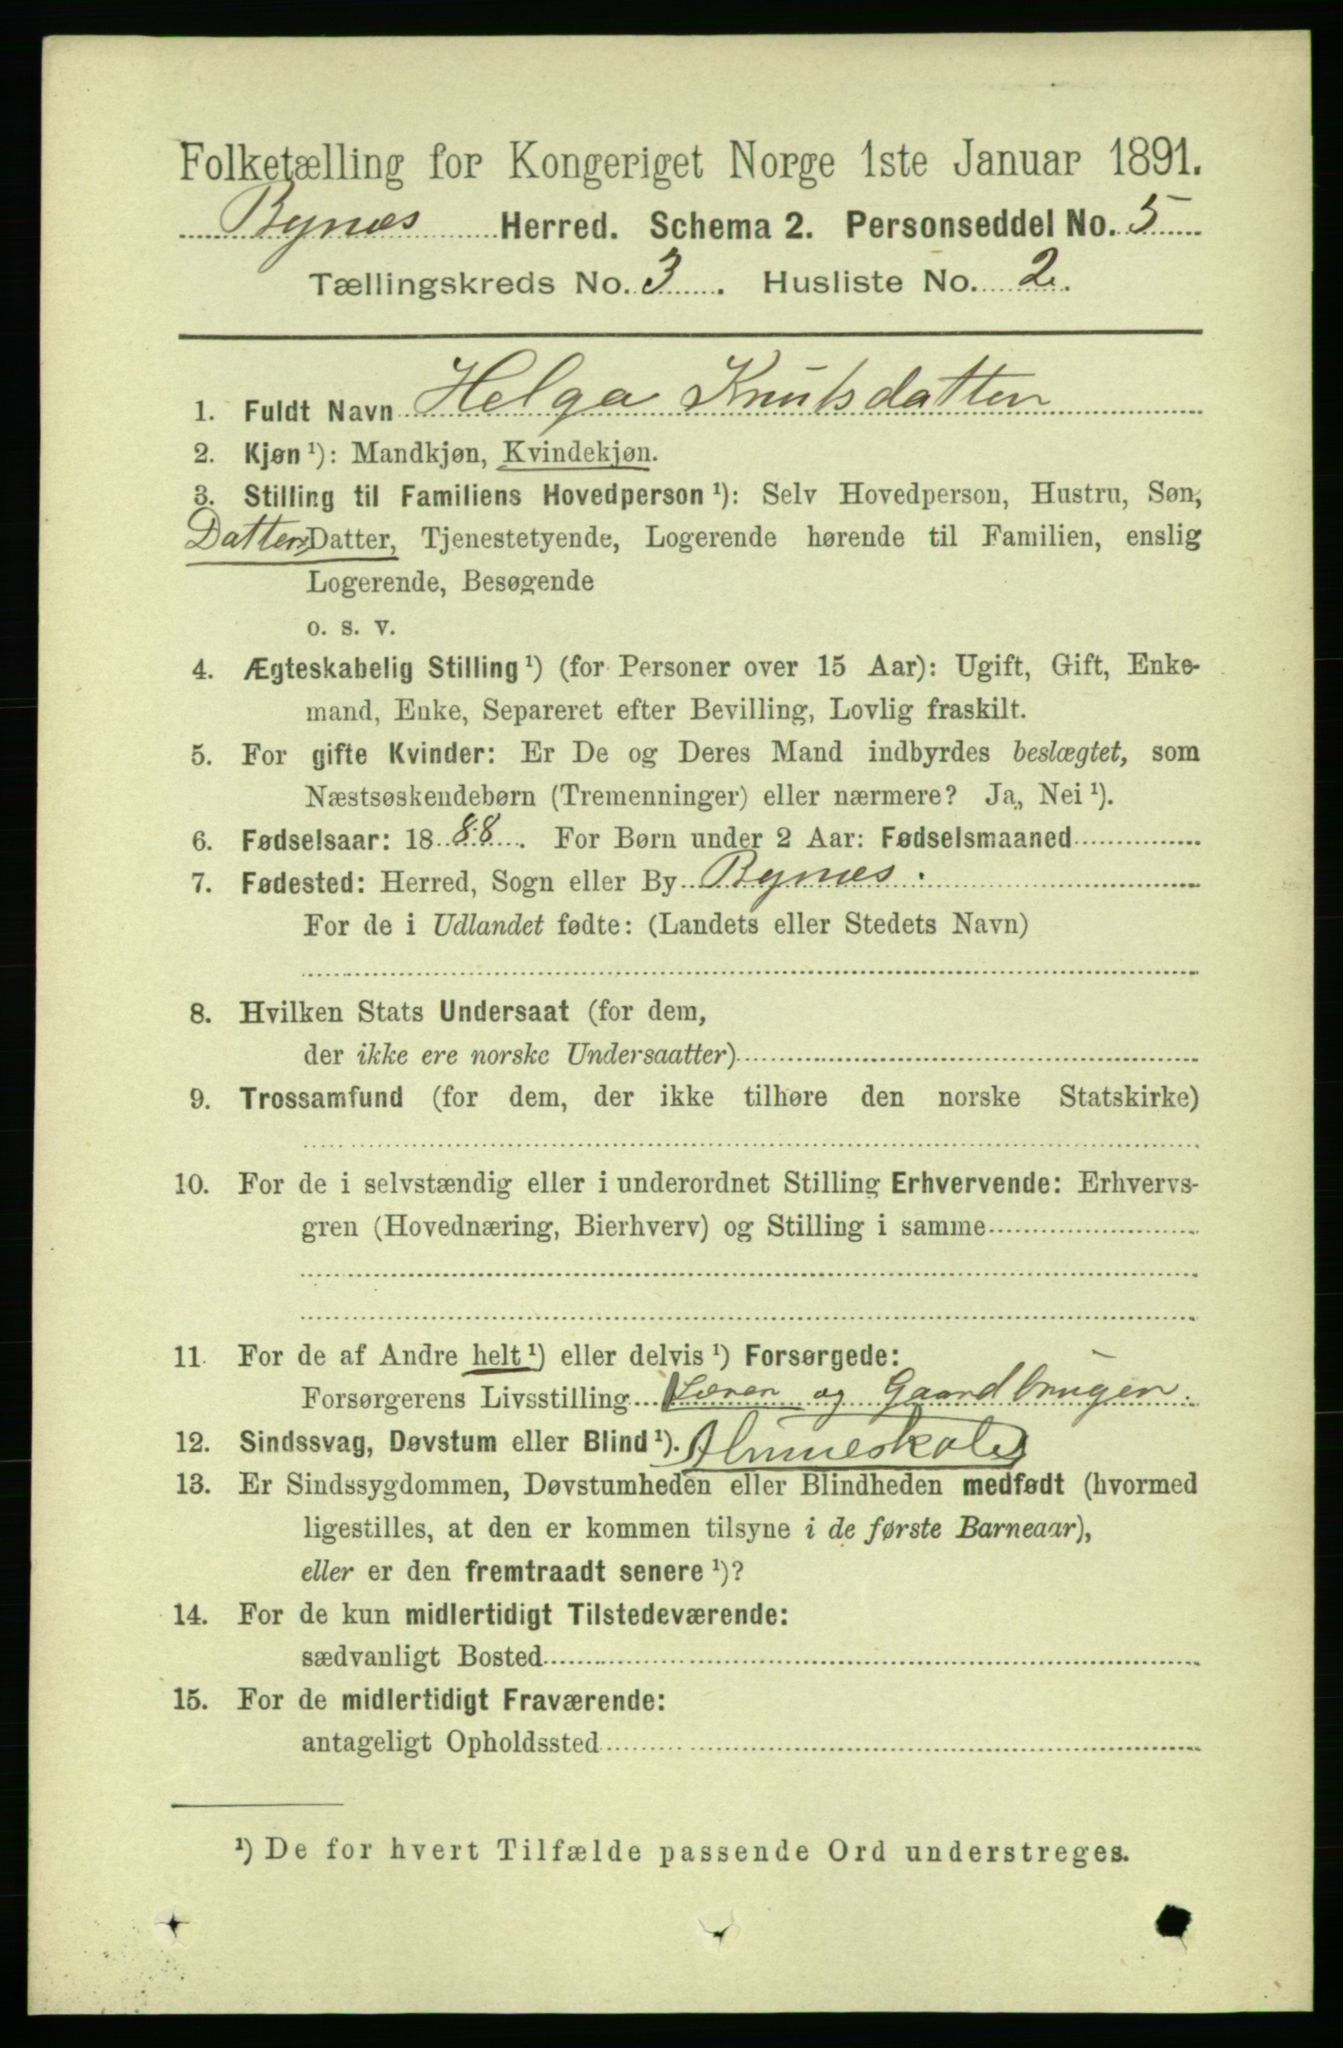 Folketælling for Kongeriget Norge 1ste Januar 1891.
Bynæs Herred. Schema 2. Personseddel No. 5
Tællingskreds No. 3. Husliste No. 2.
1. Fuldt Navn Helga Knutsdatter
2. Kjøn ¹): Mandkjøn, Kvindekjøn.
3. Stilling til Familiens Hovedperson ¹): Selv Hovedperson, Hustru, Søn,
Datters Datter, Tjenestetyende, Logerende hørende til Familien, enslig
Logerende, Besøgende
o. s. v.
4. Ægteskabelig Stilling ¹) (for Personer over 15 Aar): Ugift, Gift, Enke-
mand, Enke, Separeret efter Bevilling, Lovlig fraskilt.
5. For gifte Kvinder: Er De og Deres Mand indbyrdes beslægtet, som
Næstsøskendebørn (Tremenninger) eller nærmere? Ja, Nei ¹).
6. Fødselsaar: 1888. For Børn under 2 Aar: Fødselsmaaned
7. Fødested: Herred, Sogn eller By Bynæs.
For de i Udlandet fødte: (Landets eller Stedets Navn)
8. Hvilken Stats Undersaat (for dem,
der ikke ere norske Undersaatter)
9. Trossamfund (for dem, der ikke tilhøre den norske Statskirke)
10. For de i selvstændig eller i underordnet Stilling Erhvervende: Erhvervs-
gren (Hovednæring, Bierhverv) og Stilling i samme
11. For de af Andre helt ¹) eller delvis ¹) Forsørgede:
Forsørgerens Livsstilling (Lærer og Gaardbruger.
12. Sindssvag, Døvstum eller Blind ¹). Almueskole)
13. Er Sindssygdommen, Døvstumheden eller Blindheden medfødt (hvormed
ligestilles, at den er kommen tilsyne i de første Barneaar),
eller er den fremtraadt senere ¹)?
14. For de kun midlertidigt Tilstedeværende:
sædvanligt Bosted
15. For de midlertidigt Fraværende:
antageligt Opholdssted
¹) De for hvert Tilfælde passende Ord understreges.